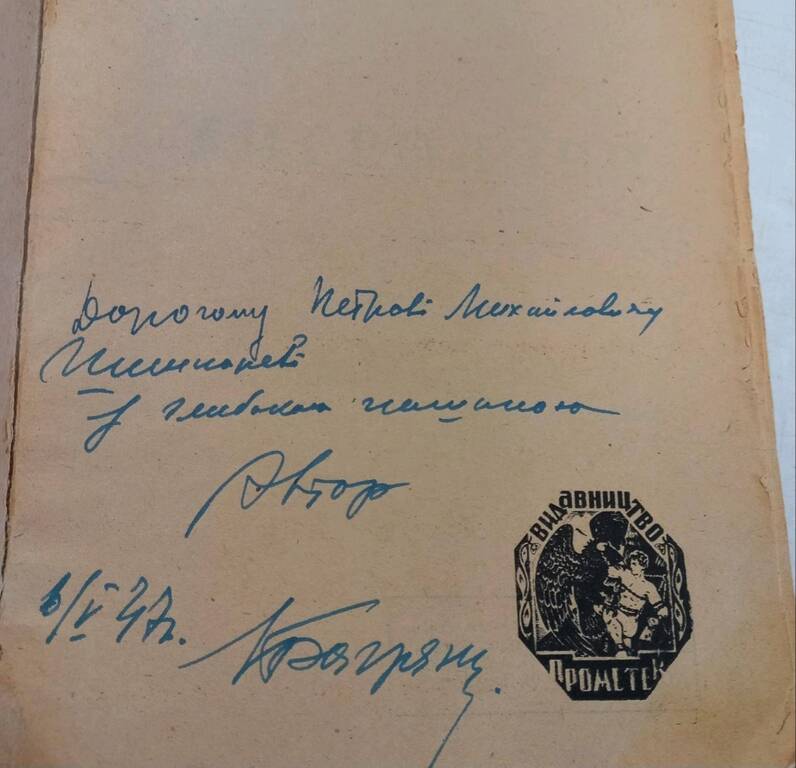 Дорогому Петрові Михайловичу
з глибокою пошаною
Автор
6/V 47 р.
І Багряний.
ВИДАВНИЦТВО
ПРОМЕТЕЙ